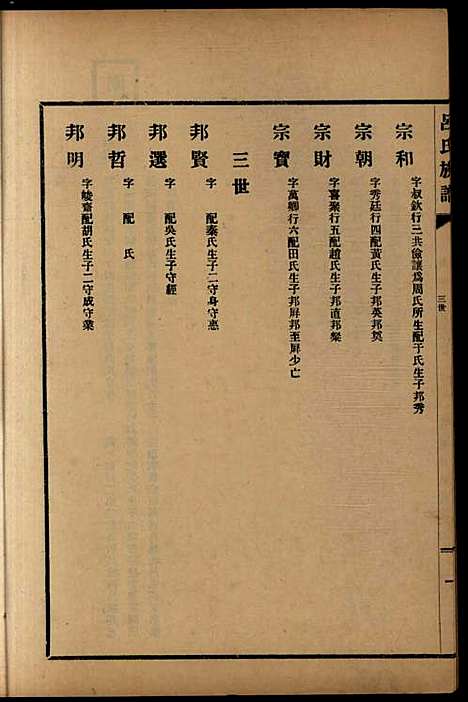 呂氏族譜
三世
一
宗和 字叔欽行三共儉讓爲周氏所生配于氏生子邦秀
宗朝 字秀廷行四配黃氏生子邦英邦奠
宗財 字喜聚行五配趙氏生子邦直邦棨
宗寶 字萬鄉行六配田氏生子邦屏邦至屏少亡
三世
邦賢 字 配秦氏生子二守身守惠
邦選 字 配吳氏生子守經
邦哲 字 配 氏
邦明 字峻齋配胡氏生子二守成守業